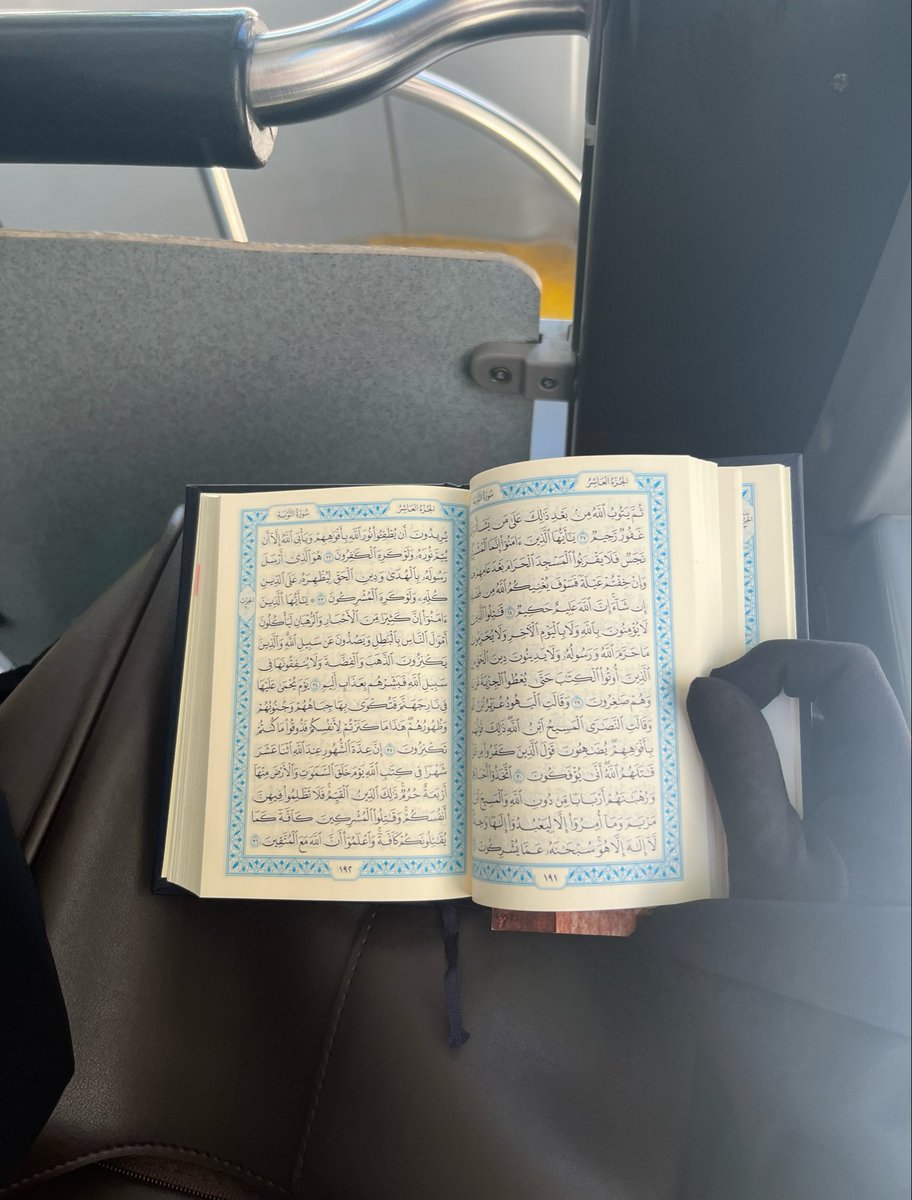 الجُزْءُ العَاشِرُ
ثُمَّ يَتُوبُ ٱللَّهُ مِنۢ بَعْدِ ذَٰلِكَ عَلَىٰ مَن
غَفُورٌ رَّحِيمٌ ٢٧ يَٰٓأَيُّهَا ٱلَّذِينَ ءَامَنُوٓا۟ إِنَّمَا
نَجَسٌ فَلَا يَقْرَبُوا۟ ٱلْمَسْجِدَ ٱلْحَرَامَ بَعْدَ عَامِهِمْ
وَإِنْ خِفْتُمْ عَيْلَةً فَسَوْفَ يُغْنِيكُمُ ٱللَّهُ مِن
إِن شَآءَ إِنَّ ٱللَّهَ عَلِيمٌ حَكِيمٌ ٢٨ قَٰتِلُوا۟
لَا يُؤْمِنُونَ بِٱللَّهِ وَلَا بِٱلْيَوْمِ ٱلْءَاخِرِ وَلَا
مَا حَرَّمَ ٱللَّهُ وَرَسُولُهُۥ وَلَا يَدِينُونَ دِينَ ٱلْحَقِّ
ٱلَّذِينَ أُوتُوا۟ ٱلْكِتَٰبَ حَتَّىٰ يُعْطُوا۟ ٱلْجِزْيَةَ
وَهُمْ صَٰغِرُونَ ٢٩ وَقَالَتِ ٱلْيَهُودُ عُزَيْرٌ
وَقَالَتِ ٱلنَّصَٰرَى ٱلْمَسِيحُ ٱبْنُ ٱللَّهِ ذَٰلِكَ
بِأَفْوَٰهِهِمْ يُضَٰهِـُٔونَ قَوْلَ ٱلَّذِينَ كَفَرُوا۟
قَٰتَلَهُمُ ٱللَّهُ أَنَّىٰ يُؤْفَكُونَ ٣٠ ٱتَّخَذُوٓا۟
وَرُهْبَٰنَهُمْ أَرْبَابًا مِّن دُونِ ٱللَّهِ وَٱلْمَسِيحَ
مَرْيَمَ وَمَآ أُمِرُوٓا۟ إِلَّا لِيَعْبُدُوٓا۟ إِلَٰهًا
لَّآ إِلَٰهَ إِلَّا هُوَ سُبْحَٰنَهُۥ عَمَّا يُشْرِكُونَ
١٩١
الجُزْءُ العَاشِرُ
سُورَةُ التَّوْبَةِ
يُرِيدُونَ أَن يُطْفِـُٔوا۟ نُورَ ٱللَّهِ بِأَفْوَٰهِهِمْ وَيَأْبَى ٱللَّهُ إِلَّآ أَن
يُتِمَّ نُورَهُۥ وَلَوْ كَرِهَ ٱلْكَٰفِرُونَ ٣٢ هُوَ ٱلَّذِىٓ أَرْسَلَ
رَسُولَهُۥ بِٱلْهُدَىٰ وَدِينِ ٱلْحَقِّ لِيُظْهِرَهُۥ عَلَى ٱلدِّينِ
كُلِّهِۦ وَلَوْ كَرِهَ ٱلْمُشْرِكُونَ ٣٣ ۞ يَٰٓأَيُّهَا ٱلَّذِينَ
ءَامَنُوٓا۟ إِنَّ كَثِيرًا مِّنَ ٱلْأَحْبَارِ وَٱلرُّهْبَانِ لَيَأْكُلُونَ
أَمْوَٰلَ ٱلنَّاسِ بِٱلْبَٰطِلِ وَيَصُدُّونَ عَن سَبِيلِ ٱللَّهِ وَٱلَّذِينَ
يَكْنِزُونَ ٱلذَّهَبَ وَٱلْفِضَّةَ وَلَا يُنفِقُونَهَا فِى
سَبِيلِ ٱللَّهِ فَبَشِّرْهُم بِعَذَابٍ أَلِيمٍ ٣٤ يَوْمَ يُحْمَىٰ عَلَيْهَا
فِى نَارِ جَهَنَّمَ فَتُكْوَىٰ بِهَا جِبَاهُهُمْ وَجُنُوبُهُمْ
وَظُهُورُهُمْ هَٰذَا مَا كَنَزْتُمْ لِأَنفُسِكُمْ فَذُوقُوا۟ مَا كُنتُمْ
تَكْنِزُونَ ٣٥ إِنَّ عِدَّةَ ٱلشُّهُورِ عِندَ ٱللَّهِ ٱثْنَا عَشَرَ
شَهْرًا فِى كِتَٰبِ ٱللَّهِ يَوْمَ خَلَقَ ٱلسَّمَٰوَٰتِ وَٱلْأَرْضَ مِنْهَآ
أَرْبَعَةٌ حُرُمٌ ذَٰلِكَ ٱلدِّينُ ٱلْقَيِّمُ فَلَا تَظْلِمُوا۟ فِيهِنَّ
أَنفُسَكُمْ وَقَٰتِلُوا۟ ٱلْمُشْرِكِينَ كَآفَّةً كَمَا
يُقَٰتِلُونَكُمْ كَآفَّةً وَٱعْلَمُوٓا۟ أَنَّ ٱللَّهَ مَعَ ٱلْمُتَّقِينَ ٣٦
١٩٢